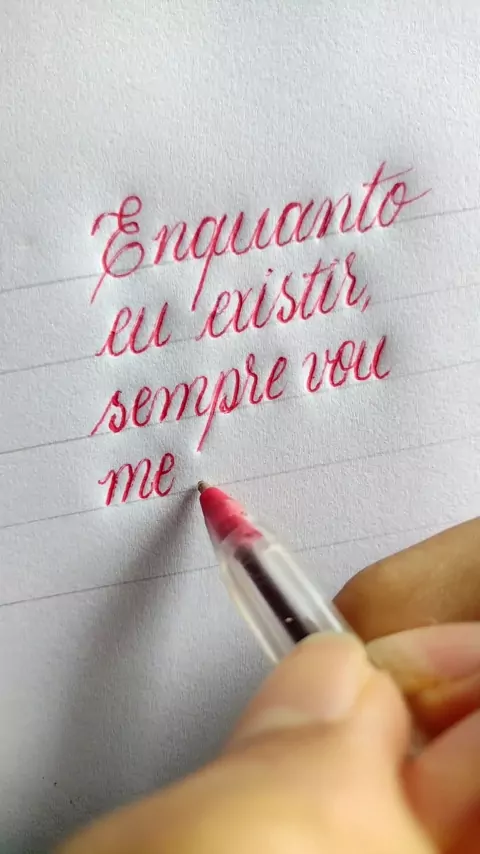 Enquanto
eu existir,
sempre vou
me